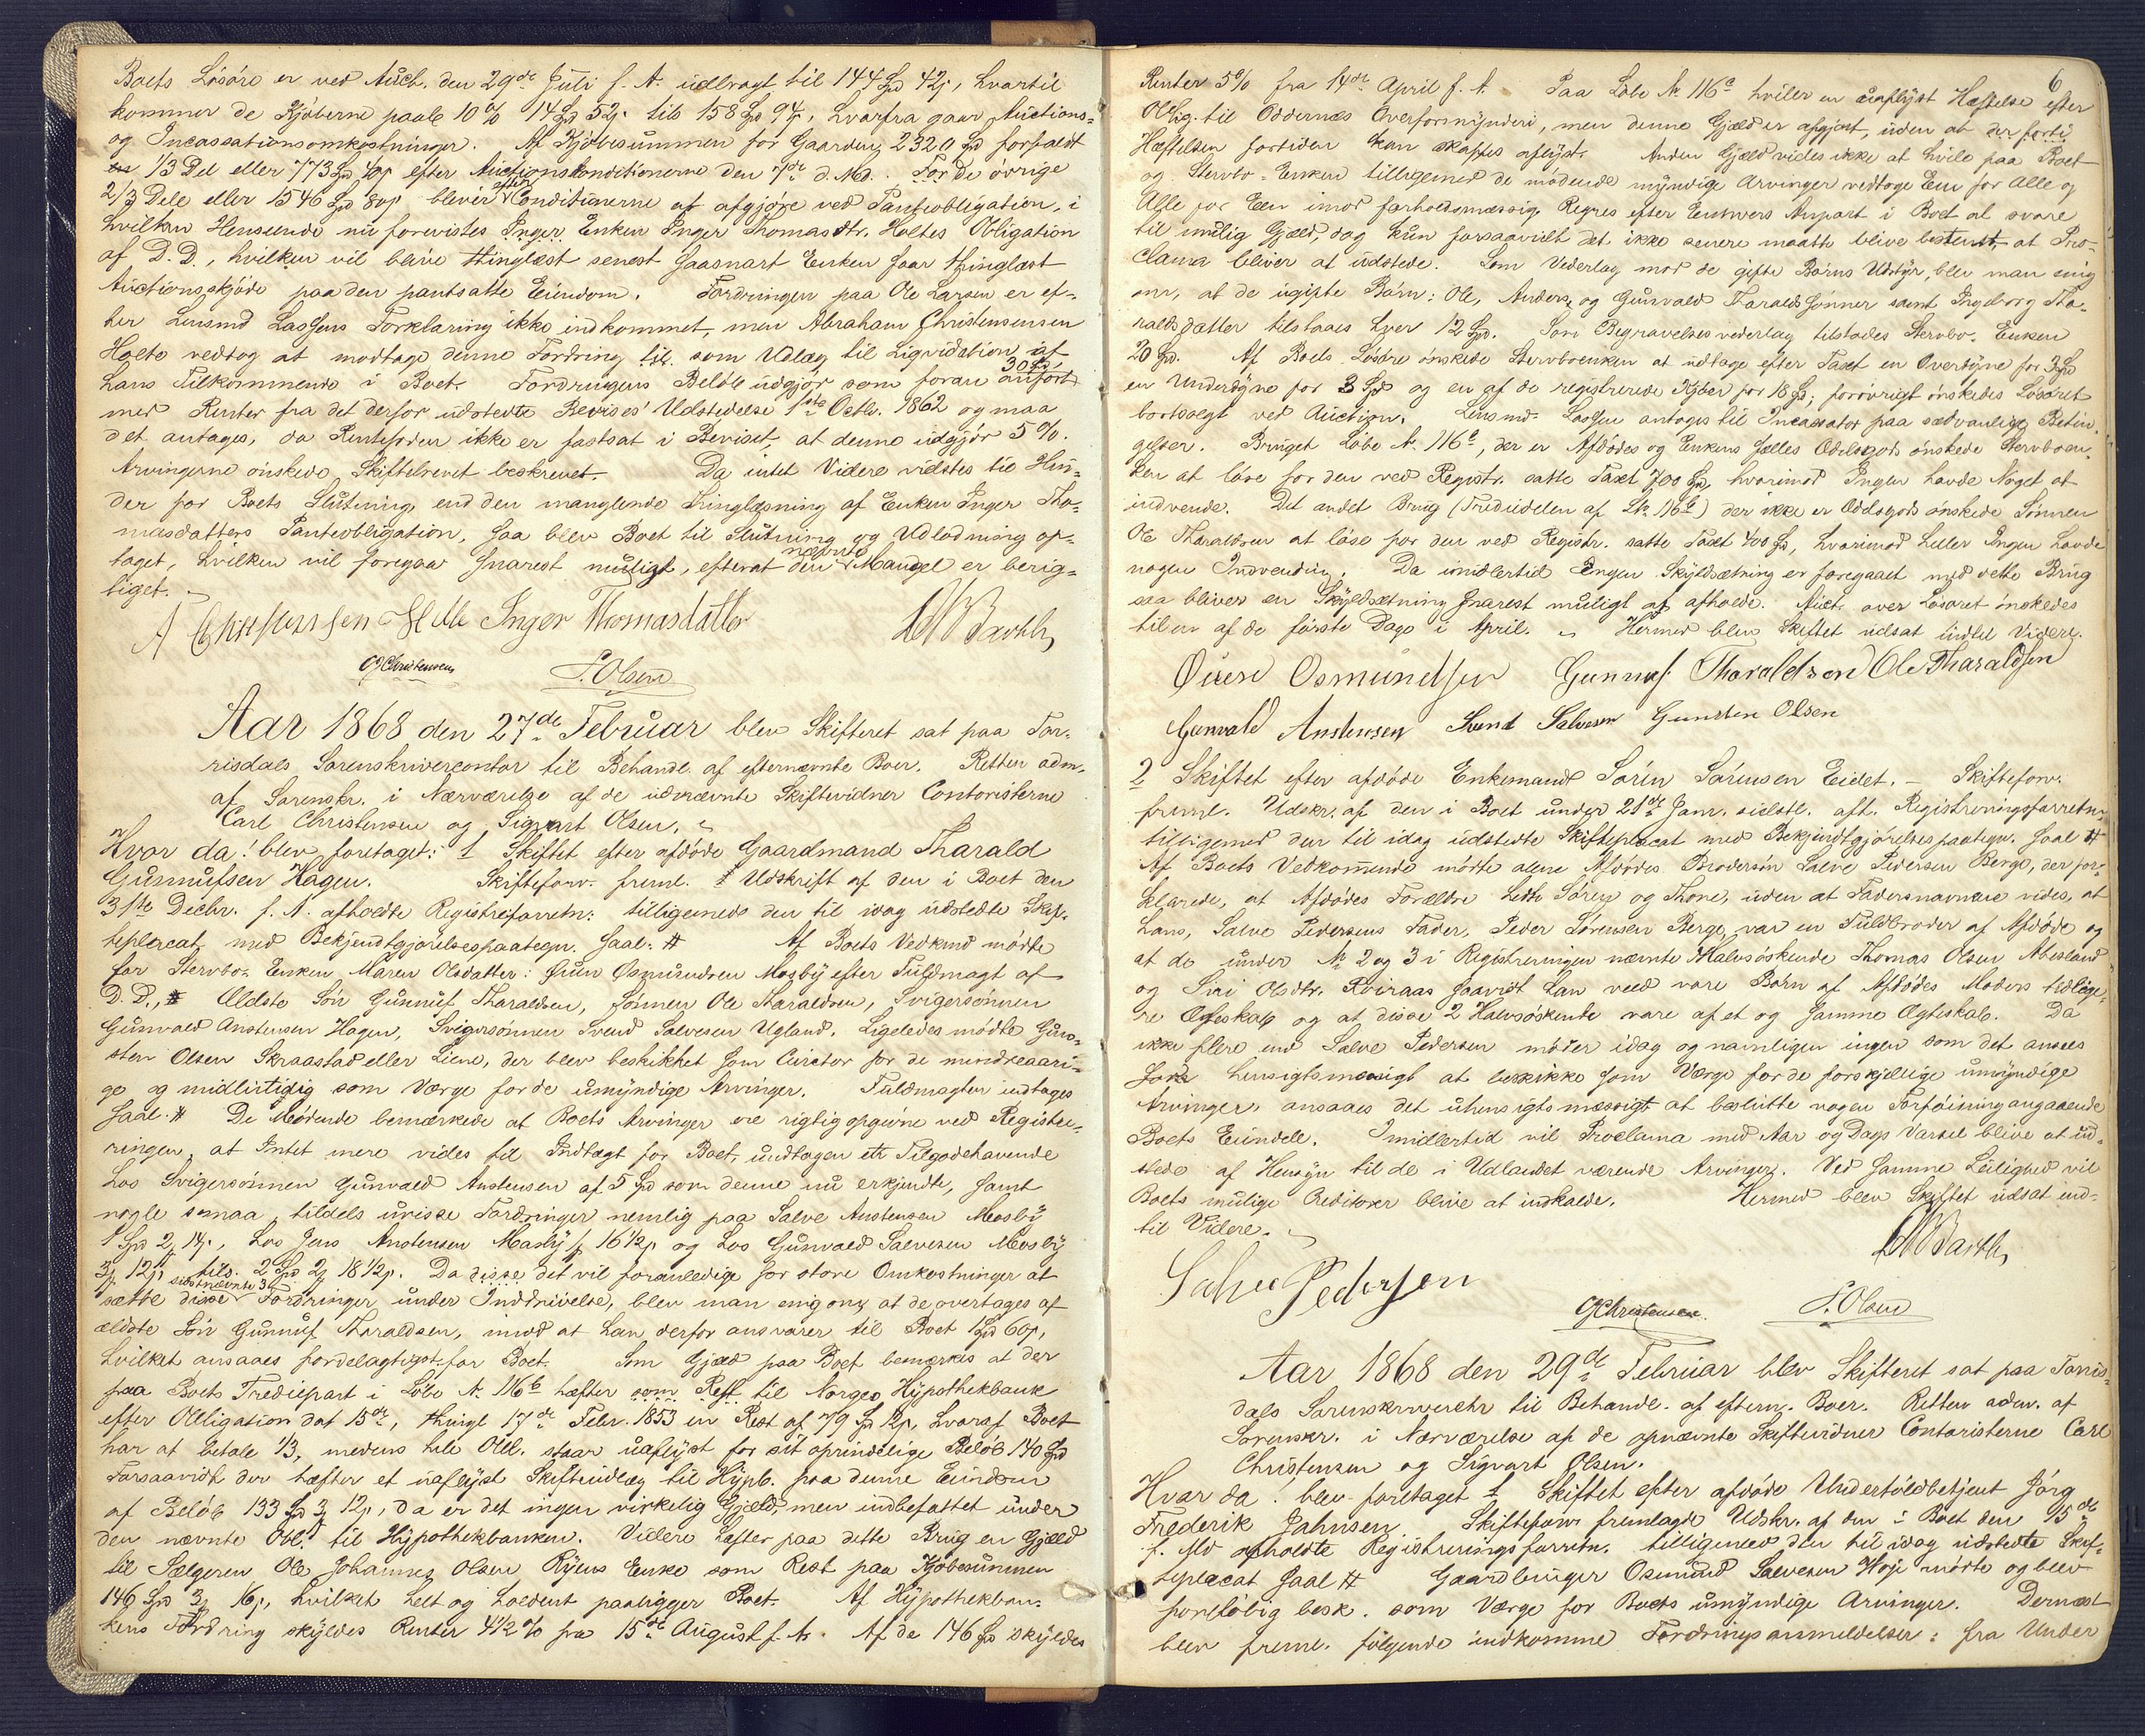 Boets Løsøre er ved Auct. den 29de Juli f. A. udbragt til 144 Spd 42 s, hvartil
kommer de Kjøberne paalb 10 % 14 Spd 52 s. tils 158 Spd 94 s, hvorfra gaar Auctions-
og Incassationsomkostninger. Af Kjøbesummen for Gaarden 2320 Spd forfaldt
1/3 Del eller 773 Spd 40 s efter Auctionskonditionerne den 7de d. Md. For de øvrige
2/3 Dele eller 1546 Spd 80 s bliver efter Conditionerne at afgjøre ved Panteobligation, i
hvilken Henseende nu forevistes Inger Enken Inger Thomasdtr. Holtes Obligation
af D. D., hvilken vil blive thinglæst senest saasnart Enken faar thinglæst
Auctionsskjøde paa den pantsatte Eiendom. Fordringen paa Ole Larsen er ef-
ter Lensmd Lassens Forklaring ikke indkommet, men Abraham Christensen
Holte vedtog at modtage denne Fordring til som Udlæg til Liqvidation af
hans Tilkommende i Boet. Fordringens Beløb udgjør som foran anført 30 Spd,
med Renter fra det derfor udstedte Bevises Udstedelse 1ste Octbr. 1862 og maa
det antages, da Rentefoden ikke er fastsat i Beviset at denne udgjør 5 %.
Arvingerne ønskede Skiftebrevet beskrevet. Da intet Videre vidstes til Hin-
der for Boets Slutning, end den manglende thinglæsning af Enken Inger Tho-
masdatters Panteobligation, saa blev Boet til Slutning og Udlodning op-
taget, hvilken vil foregaa snarest muligt, efterat den nævnte Mangel er berig-
tiget.
A Christensen Holte Inger Thomasdatter
C Christensen S. Olsen
Aar 1868 den 27de Februar blev Skifteret sat paa Tor-
risdals Sorenskrivercontor til Behandl. af efternævnte Boer. Retten adm.
af Sorenskr. i Nærværelse af de udnævnte Skiftevidner Contoristerne
Carl Christensen og Sigvart Olsen.
Hvor da! blev foretaget: 1 Skiftet efter afdøde Gaardmand Tharald
Gunnufsen Hagen. Skifteforv. freml. Udskrift af den i Boet den
31te Decbr. f. A. afholdte Registreforretn. tilligemed den til idag udstedte Skif-
teplacat med Bekjendtgjørelsespaategn. saal: # Af Boets Vedkmd mødte
for Stervbo-Enken Maren Olsdatter: Øuen Osmundsen Mosby efter Fuldmagt af
D. D., # Ældste Søn Gunnuf Tharaldsen, Sønnen Ole Tharaldsen, Svigersønnen
Gunvald Anstensen Hagen, Svigersønnen Svend Salvesen Ugland. Ligeledes mødte Gun-
sten Olsen Skraastad eller Liene, der blev beskikket som Curator for de mindreaari-
ge og midlertidig som Værge for de umyndige Arvinger. Fuldmagten indtages
saal: # De Mødende bemærkede at Boets Arvinger ere rigtig opgivne ved Registre-
ringen, at Intet mere vides til Indtægt for Boet, undtagen et Tilgodehavende
hos Svigersønnen Gunvald Anstensen af 5 Spd som denne nu erkjendte, samt
nogle smaa, tildels urisse Fordringer nemlig paa Salve Anstensen Mosby
1 Spd 2 14 s, hos Jens Anstensen Mosby 16 1/2 s og hos Gunvald Salvesen Mosby
3 12 s, tils. 2 Spd 2 18 1/2 s. Da disse det vil foranledige for store Omkostninger at
sætte disse sidstnævnte 3 Fordringer under Inddrivelse, blev man enig om, at de overtages af
ældste Søn Gunnuf Tharaldsen, imod at han derfor ansvarer til Boet 1 Spd 60 s,
hvilket ansaaes fordelagtigst for Boet. Som Gjæld paa Boet bemærkes at der
paa Boets Trediepart i Løbe No. 116b hefter som Rest til Norges Hypothekbank
efter Obligation dat 15de, thingl 17de Febr. 1853 en Rest af 79 Spd 12 s, hvoraf Boet
har at betale 1/3, medens hele Obl. staar uaflyst for sit oprindelige Beløb 140 Spd
Forsaavidt der hæfter et uaflyst Skifteudlæg til Hypb. paa denne Eiendom
af Beløb 133 Spd 3 12 s, da er det ingen virkelig Gjæld, men indbefattet under
den nævnte Obl. til Hypothekbanken. Videre hæfter paa dette Brug en Gjæld
til Sælgeren Ole Johannes Olsen Ryens Enke som Rest paa Kjøbesummen
146 Spd 3 16 s, hvilket helt og holdent paaligger Boet. Af Hypothekban-
kens Fordring skyldes Renter 4 1/2 % fra 15de August f. A. Af de 146 Spd skyldes
6
Renter 5 % fra 14de April f. A. Paa Løbe No 116a hviler en uaflyst Hæftelse efter
Oblig. til Oddernæs Overformynderi, men denne Gjæld er afgjort, uden at der forti
Hæftelsen fortiden kan skaffes aflyst. Anden Gjæld vides ikke at hvile paa Boet
og Stervbo-Enken tilligemed de mødende myndige Arvinger vedtoge Een for Alle og
Alle for Een imod forholdsmæssig Regres efter Enhvers Anpart i Boet at svare
til mulig Gjæld, dog kun forsaavidt det ikke senere maatte blive bestemt, at Pro-
clama bliver at udstede. Som Vederlag mod de gifte Børns Udstyr, blev man enig
om, at de ugifte Børn: Ole, Anders og Gunvald Tharaldssønner samt Ingeborg Tha-
raldsdatter tilstaaes hver 12 Spd. Som Begravelsesvederlag tilstodes Stervbo-Enken
20 Spd. Af Boets Løsøre ønskede Stervboenken at udtage efter Taxt en Overdyne for 3 Spd
en Underdyne for 3 Spd og en af de registrerede Kjøer for 18 Spd; forøvrigt ønskedes Løsøret
bortsolgt ved Auction. Lensmd. Lassen antoges til Incassator paa sædvanlige Betin-
gelser. Bruget Løbe No. 116a, der er Afdødes og Enkens fælles Odelsgods ønskede Stervboen-
ken at løse for den ved Registr. satte Taxt 700 Spd, hvorimod Ingen havde Noget at
indvende. Det andet Brug (Trediedelen af Lb. 116b) der ikke er Oddsgods ønskede Sønnen
Ole Tharaldsen at løse for den ved Registr. satte Taxt 400 Spd, hvorimod heller Ingen havde
nogen Indvending. Da imidlertid Ingen Skyldsætning er foregaaet med dette Brug
saa bliver en Skyldsætning snarest muligt at afholde. Auct. over Løsøret ønskedes
til en af de første Dage i April. Hermed blev Skiftet udsat indtil Videre.
Øuen Osmundsen Gunnuf Tharaldson Ole Tharaldsen
Gunvald Anstensen Svend Salvesen Gunsten Olsen
2 Skiftet efter afdøde Enkemand Søren Sørensen Eidet. – Skifteforv.
freml. Udskr. af den i Boet under 21de Jan. sidstl. afh. Registreringsforretn.
tilligemed den til idag udstedte Skifteplacat med Bekjendtgjørelsespaategn. saal #
Af Boets Vedkommende mødte alene Afdødes Brodersøn Salve Pedersen Berge, der for-
klarede, at Afdødes Forældre hedte Søren og Thone, uden at Fadersnavnene vides, at
hans, Salve Pedersens Fader, Peder Sørensen Berge, var en Fuldbroder af Afdøde og
at de under No 2 og 3 i Registreringen nævnte Halvsøskende Thomas Olsen Abesland
og Siri Olsdtr. Rviraas saavidt han veed vare Børn af Afdødes Moders tidlige-
re Ægteskab og at disse 2 Halvsøskende vare af et og samme Ægteskab. Da
ikke flere end Salve Pedersen møder idag og navnligen ingen som det ansees
hensigtsmæssigt at beskikke som Værge for de forskjellige umyndige
Arvinger, ansaaes det uhensigtsmæssigt at beslutte nogen Forføining angaaende
Boets Eiendele. Imidlertid vil Proclama med Aar og Dags Varsel blive at ud-
stede af Hensyn til de i Udlandet værende Arvinger. Ved samme Leilighed vil
Boets mulige Creditorer blive at indkalde. Hermed blev Skiftet udsat ind-
til Videre.
Salve Pedersen
C Christensen. S. Olsen
Aar 1868 den 29de Februar blev Skifteret sat paa Torris-
dals Sorenskrivercntr til Behandl. af eftern. Boer. Retten adm. af
Sorenskr. i Nærværelse af de opnævnte Skiftevidner Contoristerne Carl
Christensen og Sigvart Olsen.
Hvor da! blev foretaget 1 Skiftet efter afdøde Undertoldbetjent Jørg
Frederik Jahnsen Skifteforv. fremlagde Udskr. af den i Boet den 15de
f. Md afholdte Registreringsforretn. tilligemed den til idag udstedte Skif-
teplacat saal # Gaardbruger Osmund Salvesen Høje mødte og blev
foreløbig besk. som Værge for Boets umyndige Arvinger. Dernæst
blev freml. følgende indkomne Fordringsanmeldelser: fra Under